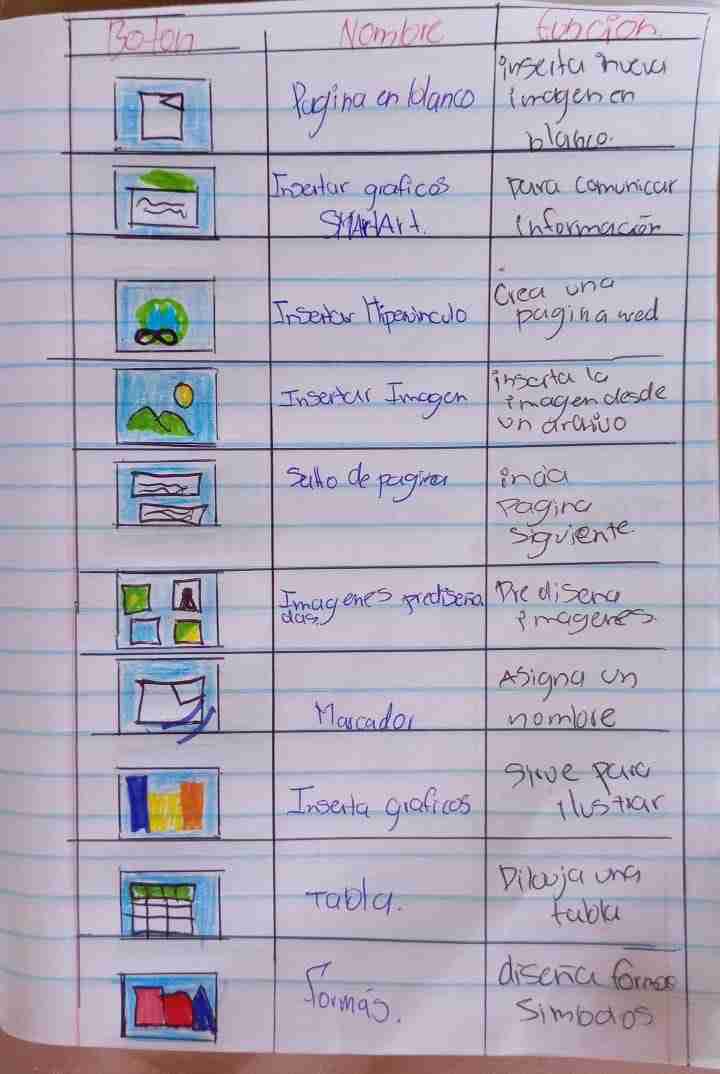 Boton Nombre Función
Pagina en blanco
inserta nueva
imagen en
blanco.
Insertar graficos
SMArtArt.
para comunicar
información
Insertar Hipervinculo
Crea una
pagina wed
Insertar Imagen
inserta la
imagen desde
un archivo
Salto de pagina
incia
Pagina
siguiente
Imagenes prediseña
das
Pre disena
imagenes
Marcador
Asigna un
nombre
Inserta graficos
Sirve para
ilustrar
Tabla.
Dibuja una
tabla
formás.
diseña formas
Simbolos